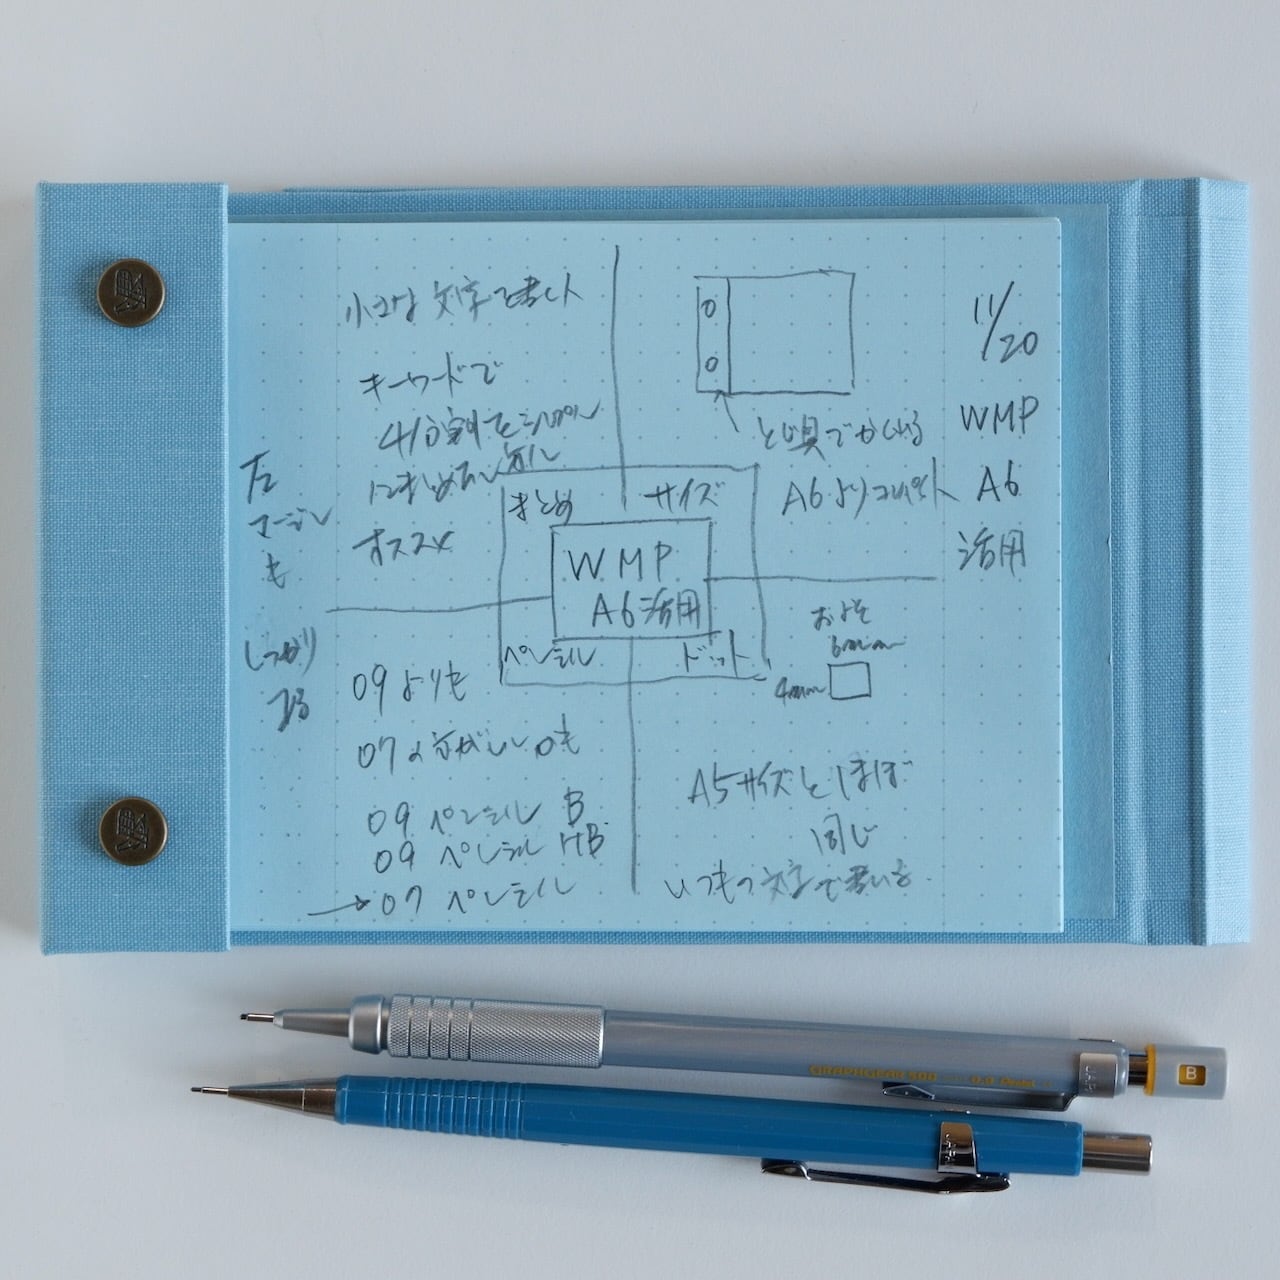 小さな文字で書く
キーワードで
4分割でシンプル
にまとめるし
オススメ
まとめ
サイズ
とじ具でかくれる
A6よりコンパクト
11/20
WMP
A6
活用
左
マージン
も
しっかり
WMP
A6活用
ペンシル
ドット
09よりも
07の方がいいかも
09 ペンシル B
09 ペンシル HB
→07 ペンシル
およそ
6mm
4mm
A5サイズとほぼ
同じ
いつもの文字で書いる
GRAPHGEAR 500 0.9 Pentel
JAPAN
B